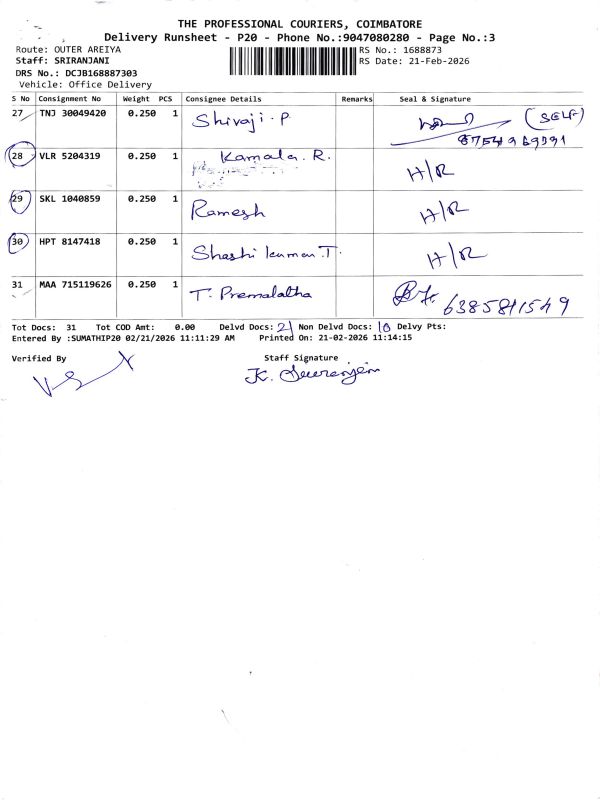 THE PROFESSIONAL COURIERS, COIMBATORE
Delivery Runsheet - P20 - Phone No.:9047080280 - Page No.:3
Route: OUTER AREIYA
RS No.: 1688873
Staff: SRIRANJANI
RS Date: 21-Feb-2026
DRS No.: DCJB168887303
Vehicle: Office Delivery
S No Consignment No Weight PCS Consignee Details Remarks Seal & Signature
27 TNJ 30049420 0.250 1 Shivaji. P (SELF)
28 VLR 5204319 0.250 1 Kamala. R. H/R
29 SKL 1040859 0.250 1 Ramesh H/R
30 HPT 8147418 0.250 1 Shashi kumar. T. H/R
31 MAA 715119626 0.250 1 T. Premalatha 6385811549
Tot Docs: 31 Tot COD Amt: 0.00 Delvd Docs: 21 Non Delvd Docs: 10 Delvy Pts:
Entered By :SUMATHIP20 02/21/2026 11:11:29 AM Printed On: 21-02-2026 11:14:15
Verified By Staff Signature